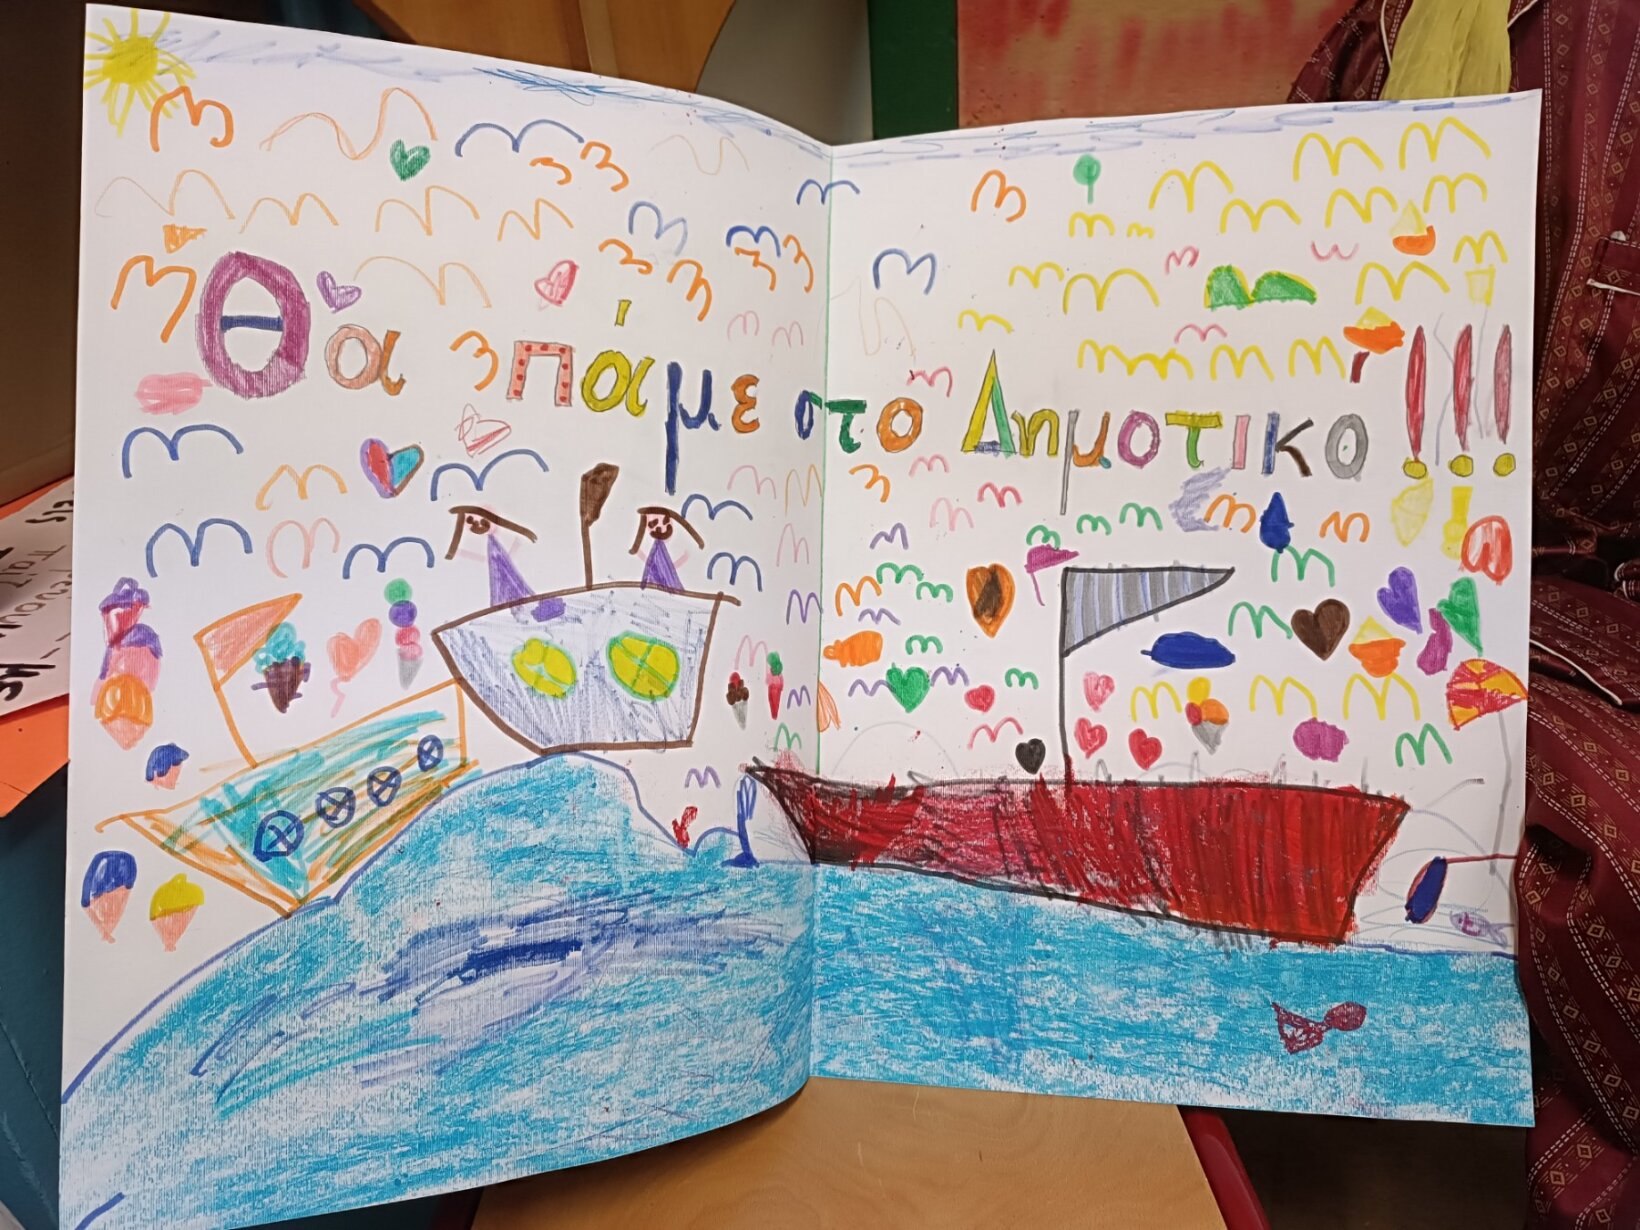 Θα πάμε στο Δημοτικο!!!